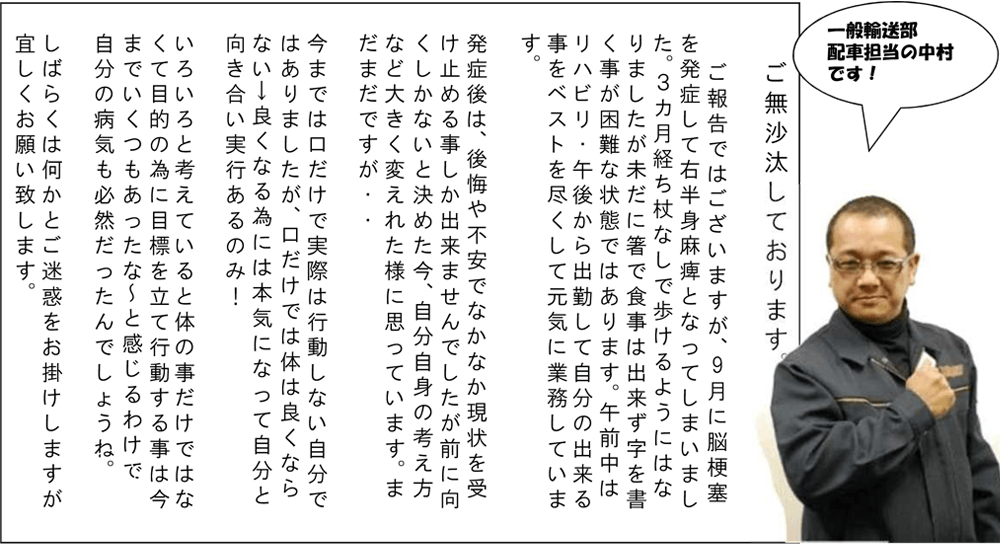 一般輸送部
配車担当の中村
です！
ご無沙汰しております。
ご報告ではございますが、９月に脳梗塞
を発症して右半身麻痺となってしまいまし
た。３カ月経ち杖なしで歩けるようにはな
りましたが未だに箸で食事は出来ず字を書
く事が困難な状態ではあります。午前中は
リハビリ・午後から出勤して自分の出来る
事をベストを尽くして元気に業務していま
す。
発症後は、後悔や不安でなかなか現状を受
け止める事しか出来ませんでしたが前に向
くしかないと決めた今、自分自身の考え方
など大きく変えれた様に思っています。ま
だまだですが・・
今までは口だけで実際は行動しない自分で
はありましたが、口だけでは体は良くなら
ない→良くなる為には本気になって自分と
向き合い実行あるのみ！
いろいろと考えていると体の事だけではな
くて目的の為に目標を立て行動する事は今
までいくつもあったな～と感じるわけで、
自分の病気も必然だったんでしょうね。
しばらくは何かとご迷惑をお掛けしますが
宜しくお願い致します。